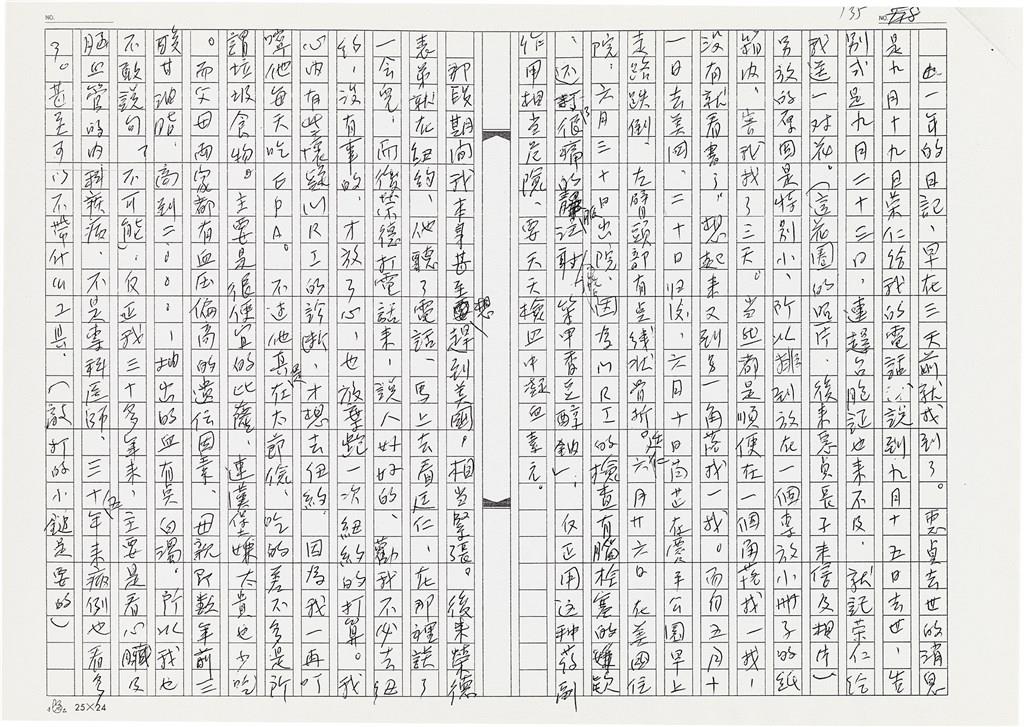 NO.
135
NO.
這一年的日記,早在三天前就找到了。惠貞去世的消息
是九月十九日榮仁給我的電話,說到九月十五日去世,告
別式是九月二十三日,連趕台胞証也來不及,就記榮仁給
我送一對花。(這花圈的照片,後來惠貞長子來信及相片)
另放的原因是特別小,所以排到放在一個專放小冊子的紙
箱內,害我找了三天。當然都是順便在一個角落找一找,
沒有就看書了,想起來又到另一角落找一找。而句五月十
一日去美國,二十日歸後,六月十日自芷在賣手公園早上
走路跌倒,左臂頭部有点線狀骨折。延仁六月廿六日在美國住
院,六月三十日出院,因為MRI的檢查有腦栓塞的嫌疑
,还打了很痛的腹注射 筆甲香豆醇鈉」,仅正用这种药副
作用相当危險,要天天檢血中凝血素元。
那段期间我本身甚至想趕到美國,相当緊張。後來榮德
表弟就在紐約,他聽了電話,馬上去看延仁,在那裡談了
一会兒,而後榮德打電話來,說人好好的,勸我不必去紐
約,沒有事的,才放了心,也放棄跑一次紐約的打算。我
心內有些懷疑MRI的診斷,才想去紐約,因為我一再叮
嚀他每天吃EPA。不过他真是在太節儉,吃的差不多是所
謂垃圾食物。主要是很便宜的比薩,連漢堡嫌太貴也少吃
。而父母兩家都有血压偏高的遺伝因素,母親所数年前三
酸甘油脂,高到二〇〇〇,抽出的血有点白濁。所以我也
不敢說句?不可能,仅正我三十多年來,主要是看心臟及
腦血管的內科疾病,不是專科医師,三十五年來病例也看多
了。甚至可以不帶什么工具,(敲打的小鎚是要的)
25×24